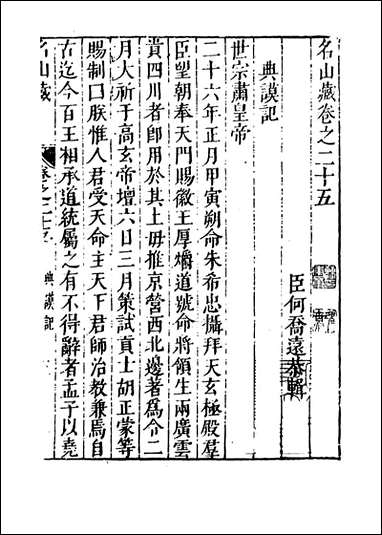 名山藏卷之二十五
臣何喬遠恭輯
典謨記
世宗肅皇帝
二十六年正月甲寅朔命朱希忠攝拜天玄極殿羣
臣望朝奉天門賜徽王厚爝道號命將領生兩廣雲
貴四川者卽用於其土毋推京營西北邊著爲令二
月大祈于高玄帝壇六日三月策試貢士胡正蒙等
賜制曰朕惟人君受天命主天下君師治教兼焉自
古迄今百王相承道統屬之有不得辭者孟子以堯
名山藏
卷之二十五
典謨記